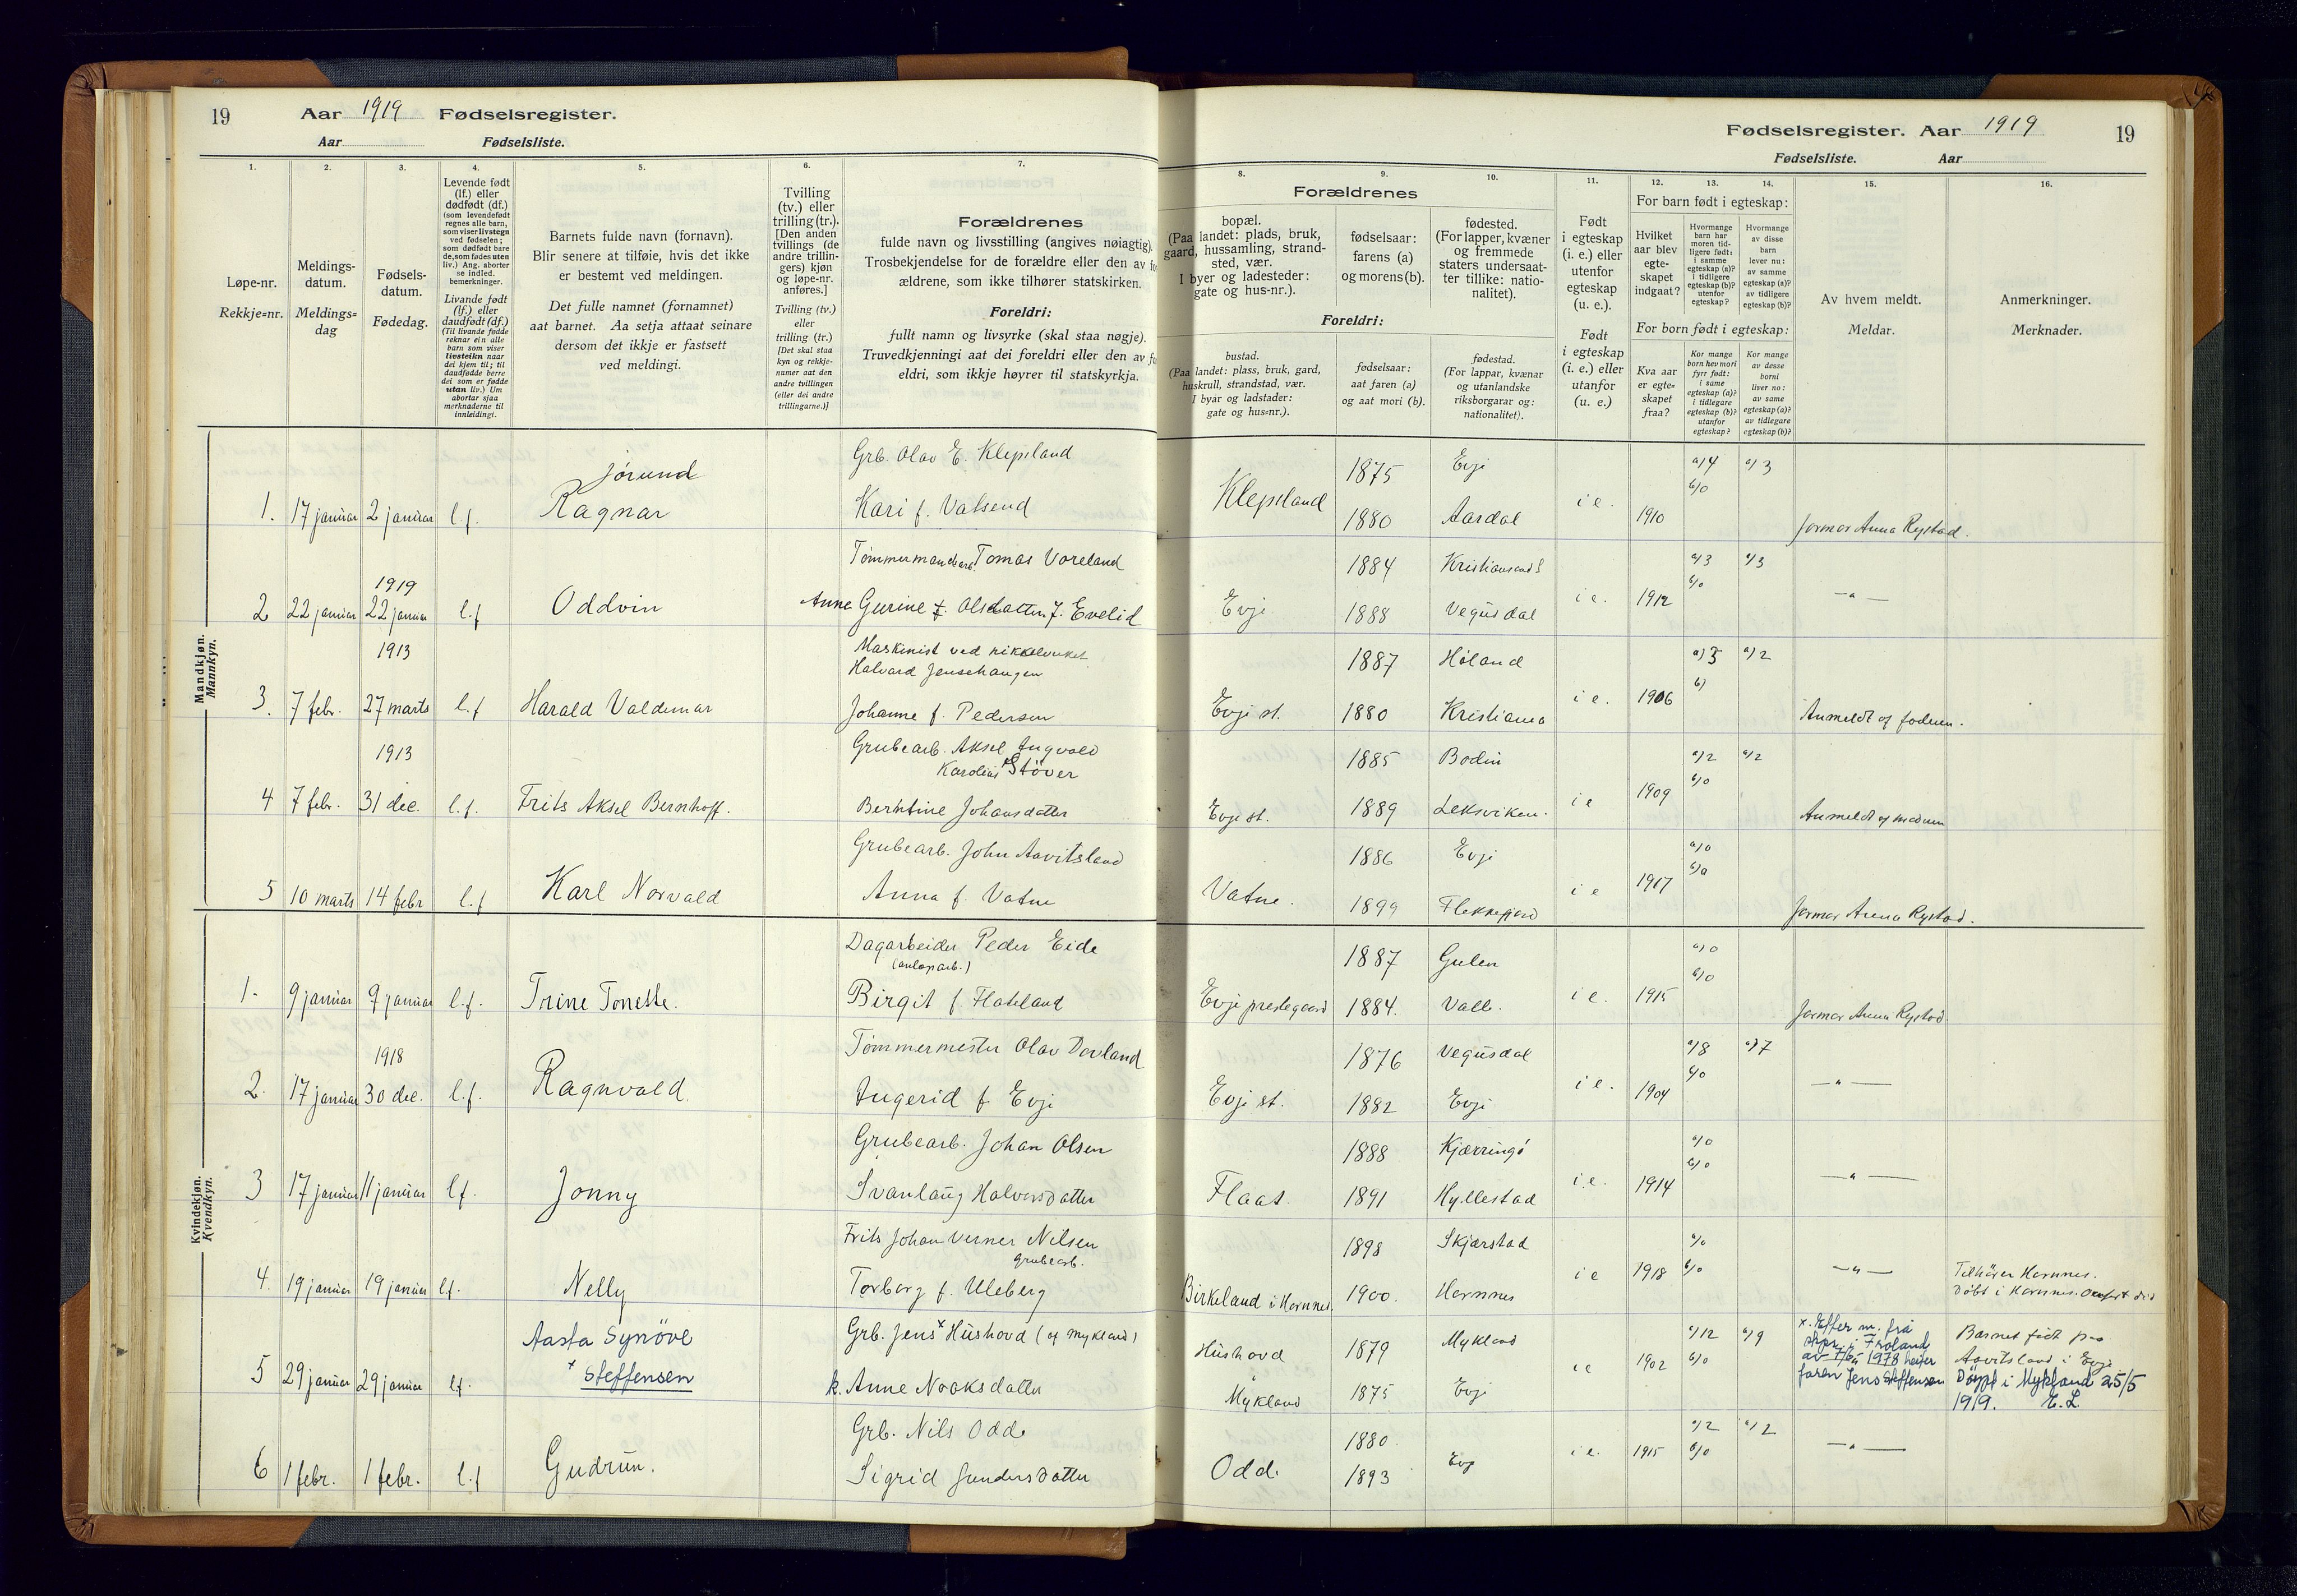 19 Aar 1919 Fødselsregister.
Aar Fødselsliste.
Fødselsregister. Aar 1919 19
Fødselsliste. Aar
1. 2. 3. 4. 5. 6. 7.
8. 9. 10. 11. 12. 13. 14. 15. 16.
Løpe-nr.
Rekkje=nr.
Meldings-
datum.
Meldings=
dag
Fødsels-
datum.
Fødedag.
Levende født
(lf.) eller
dødfødt (df.)
(som levendefødt
regnes alle barn,
som viser livstegn
ved fødselen;
som dødfødt bare
de, som fødes uten
liv.) Ang. aborter
se indled.
bemerkninger.
Livande født
(lf.) eller
daudfødt (df.)
(Til livande fødde
reknar ein alle
barn som viser
livsteikn naar
dei kjem til; til
daudfødde berre
dei som er fødde
utan liv.) Um
abortar sjaa
merknaderne til
innleidingi.
Barnets fulde navn (fornavn).
Blir senere at tilføie, hvis det ikke
er bestemt ved meldingen.
Det fulle namnet (fornamnet)
aat barnet. Aa setja attaat seinare
dersom det ikkje er fastsett
ved meldingi.
Tvilling
(tv.) eller
trilling (tr.).
[Den anden
tvillings (de
andre trillin-
gers) kjøn
og løpe-nr.
anføres.]
Tvilling (tv.)
eller
trilling (tr.)
[Det skal staa
kyn og rekkje-
numer aat den
andre tvillingen
(eller dei andre
trillingarne.)]
Forældrenes
fulde navn og livsstilling (angives nøiagtig).
Trosbekjendelse for de forældre eller den av for
ældrene, som ikke tilhører statskirken.
Foreldri:
fullt namn og livsyrke (skal staa nøgje).
Truvedkjenningi aat dei foreldri eller den av fo
eldri, som ikkje høyrer til statskyrkja.
Forældrenes
bopæl.
(Paa landet: plads, bruk,
gaard, hussamling, strand-
sted, vær.
I byer og ladesteder:
gate og hus-nr.).
fødselsaar:
farens (a)
og morens (b).
fødested.
(For lapper, kvæner
og fremmede
staters undersaat-
ter tillike: natio-
nalitet).
Foreldri:
bustad.
(Paa landet: plass, bruk, gard,
huskrull, strandstad, vær.
I byar og ladstader:
gate og hus=nr.).
fødselsaar:
aat faren (a)
og aat mori (b).
fødestad.
(For lappar, kvænar
og utanlandske
riksborgarar og:
nationalitet).
Født
i egteskap
(i. e.) eller
utenfor
egteskap
(u. e.).
Født
i egteskap
(i. e.) eller
utanfor
(u. e.)
For barn født i egteskap:
Hvilket
aar blev
egte-
skapet
indgaat?
Hvormange
barn har
moren tid-
ligere født:
i samme
egteskap (a)?
i tidligere
egteskap (b)?
utenfor
egteskap?
Hvormange
av disse
barn
lever nu:
av samme
egteskap (a)?
av tidligere
egteskap (b)?
For born født i egteskap:
Kva aar
er egte=
skapet
fraa?
Kor mange
born hev mori
fyrr født:
i same
egteskap (a)?
i tidlegare
egteskap (b)?
utanfor
egteskap?
Kor mange
av desse
borni
liver no:
av same
egteskap (a)?
av tidlegare
egteskap (b)?
Av hvem meldt.
Meldar.
Anmerkninger.
Merknader.
Mandkjøn.
Mannkyn.
Jørund Grb. Olav E. Klepsland 1875 Evje a/4 a/3
1. 17 januar 2 januar l.f. Ragnar Kari f. Valsend Klepsland 1880 Aardal i e. 1910 b/0 Jormor Anna Rystad.
Tomas Voreland 1884 Kristiansand S a/3 a/3
1919
2 22 januar 22 januar l.f Oddvin Anne Gurine Olsdatter f. Evelid Evje 1888 Vegusdal i e. 1912 b/0 — " —
1913 Maskinist ved nikkelverket
Halvard Jensehaugen 1887 Høland a/3 a/2
3. 7 febr. 27 marts l.f Harald Valdemar Johanne f. Pedersen Evje st. 1880 Kristiania i e. 1906 b) Anmeldt af faderen.
1913 Grubearb. Aksel Ingvald
Støver 1885 Bodin a/2 a/2
4 7 febr. 31 dec. l.f. Frits Aksel Bernhoff. Berntine Johansdatter Evje st. 1889 Leksviken. i e 1909 b/0 Anmeldt af moderen
Grubearb. John Aavitsland 1886 Evje a/0
5 10 marts 14 febr l.f Karl Norvald Anna f. Vatne Vatne. 1899 Flekkefjord i e 1917 b/0 Jormor Anna Rystad.
Kvindekjøn.
Kvendkyn.
Dagarbeider Peder Eide 1887 Gulen a/0
1. 9 januar 9 januar l.f. Trine Tonette. Birgit f. Flateland Evje prestegaard 1884. Valle. i e. 1915 b/0 Jormor Anna Rystad
1918 Tømmermester Olav Dovland 1876 Vegusdal a/8 a/7
2. 17 januar 30 dec. l.f. Ragnvald. Ingerid f. Evje Evje st. 1882 Evje i e. 1904 b/0 — " —
Grubearb. Johan Olsen 1888 Kjærringø a/0
3 17 januar 11 januar l f. Jonny Svanlaug Halvorsdatter Flaat. 1891 Hyllestad i e. 1914 b/0 — " —
Frits Johan Verner Nilsen 1898 Skjærstad a/0
grubearb.
4. 19 januar 19 januar l.f. Nelly Torborg f. Uleberg Birkeland i Hornnes. 1900. Hornnes i e 1918 b/0 — " — Tilhører Hornnes.
Døbt i Hornnes.
Aasta Synöve Grb. Jens x Hüshovd (af Mykland) Hüshovd 1879 Mykland a/12 a/9 x. Efter m. frå
skpr. i Froland
av 1978 heiter
faren Jens Steffensen
5 29 januar 29 januar l.f. x Steffensen k. Anne Nooksdatter Mykland 1875 Evje i e 1902 b/0 Barnet født paa
Aavitsland i Evje
Döypt i Mykland 25/5
1919. E. L
Grb. Nils Odde 1880. a/2 a/2
6 1 febr. 1 febr. l.f Gudrun. Sigrid Gundersdatter Odde 1893 Evje i e. 1915 b/0 — " —